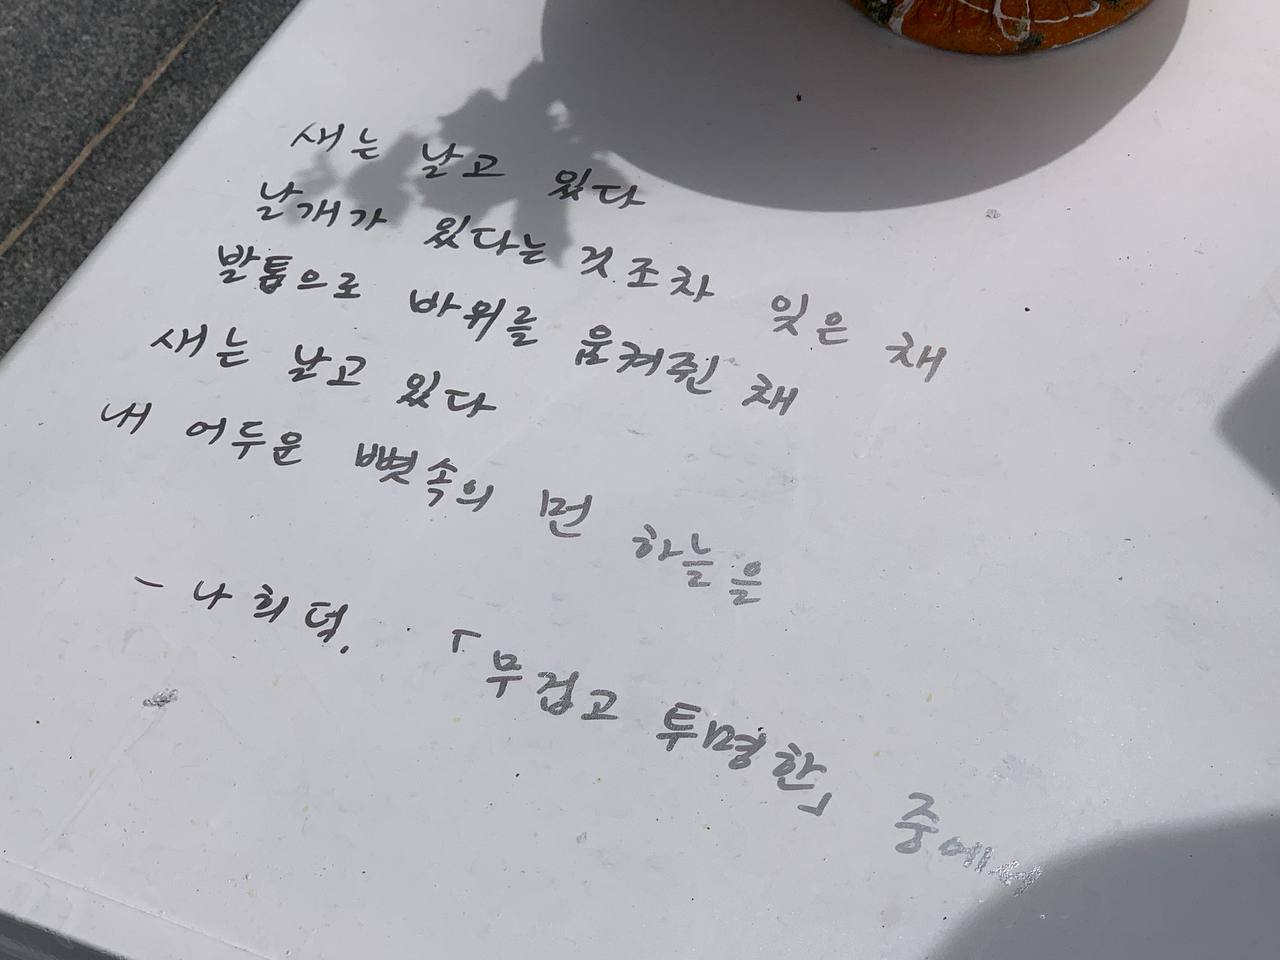 새는 날고 있다
날개가 있다는 것조차 잊은 채
발톱으로 바위를 움켜쥔 채
새는 날고 있다
내 어두운 뼛속의 먼 하늘을
- 나희덕, 「무겁고 투명한」 중에서